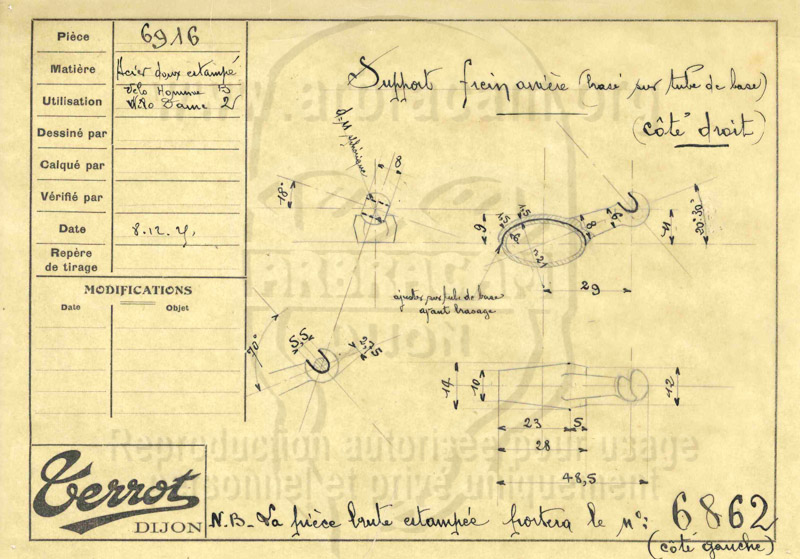 Pièce 6916
Matière Acier doux estampé
Utilisation Vélo Homme 5
Vélo Dame 2
Dessiné par
Calqué par
Vérifié par
Date 8.12.
Repère
de tirage
MODIFICATIONS
Date Objet
Support frein arrière (brasé sur tube de base)
(côté droit)
8
18°
1,5 1,5
9
8
9
11
20°30'
29
ajuster sur tube de base
avant brasage
70°
5,5
14
10
12
23 5
28
48,5
Terrot
DIJON
N.B. - La pièce brute estampée portera le n°: 6862
(côté gauche)
www.abracam.org
DIJON
Reproduction autorisée pour usage
personnel et privé uniquement